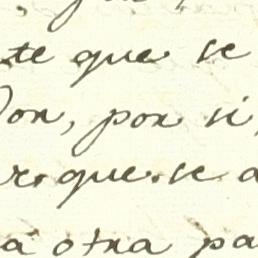 te que se
on, por si,
r que se a
a otra pa